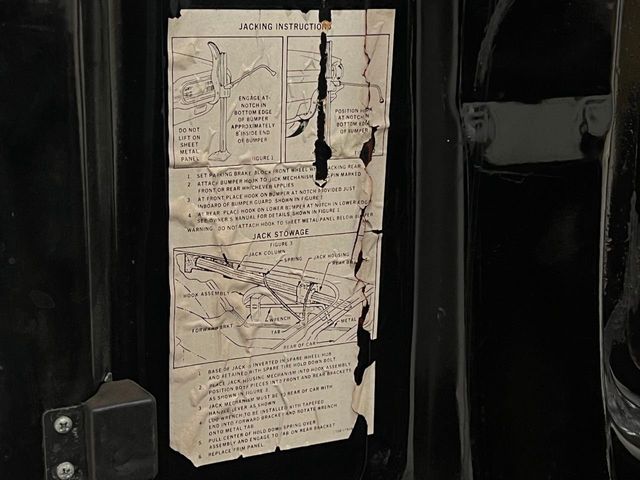 JACKING INSTRUCTIONS
ENGAGE AT
NOTCH IN
BOTTOM EDGE
OF BUMPER
APPROXIMATELY
8 INSIDE END
OF BUMPER
DO NOT
LIFT ON
SHEET
METAL
PANEL
FIGURE 1
POSITION
AT NOTCH
BOTTOM EDGE
OF BUMPER
1. SET PARKING BRAKE BLOCK FRONT WHEEL JACKING REAR
2. ATTACH BUMPER HOOK TO JACK MECHANISM PIN MARKED
FRONT OR REAR WHICHEVER APPLIES
3. AT FRONT, PLACE HOOK ON BUMPER AT NOTCH PROVIDED JUST
INBOARD OF BUMPER GUARD SHOWN IN FIGURE
4. AT REAR, PLACE HOOK ON LOWER BUMPER AT NOTCH IN LOWER EDGE
SEE OWNER'S MANUAL FOR DETAILS, SHOWN IN FIGURE 1
WARNING DO NOT ATTACH HOOK TO SHEET METAL PANEL BELOW BUMPER
JACK STOWAGE
FIGURE 3
JACK COLUMN
SPRING
JACK HOUSING
REAR
HOOK ASSEMBLY
FORWARD BRKT
WRENCH
TAB
METAL
REAR OF CAR
1. BASE OF JACK IS INVERTED IN SPARE WHEEL HUB
AND RETAINED WITH SPARE TIRE HOLD DOWN BOLT
2. PLACE JACK HOUSING MECHANISM INTO HOOK ASSEMBLY
POSITION BOTH PIECES INTO FRONT AND REAR BRACKETS
AS SHOWN IN FIGURE 3
3. JACK MECHANISM MUST BE TO REAR OF CAR WITH
HANDLE LEVER AS SHOWN
4. LUG WRENCH TO BE INSTALLED WITH TAPERED
END INTO FORWARD BRACKET AND ROTATE WRENCH
ONTO METAL TAB
5. PULL CENTER OF HOLD DOWN SPRING OVER
ASSEMBLY AND ENGAGE TO TAB ON REAR BRACKET
6. REPLACE TRIM PANEL